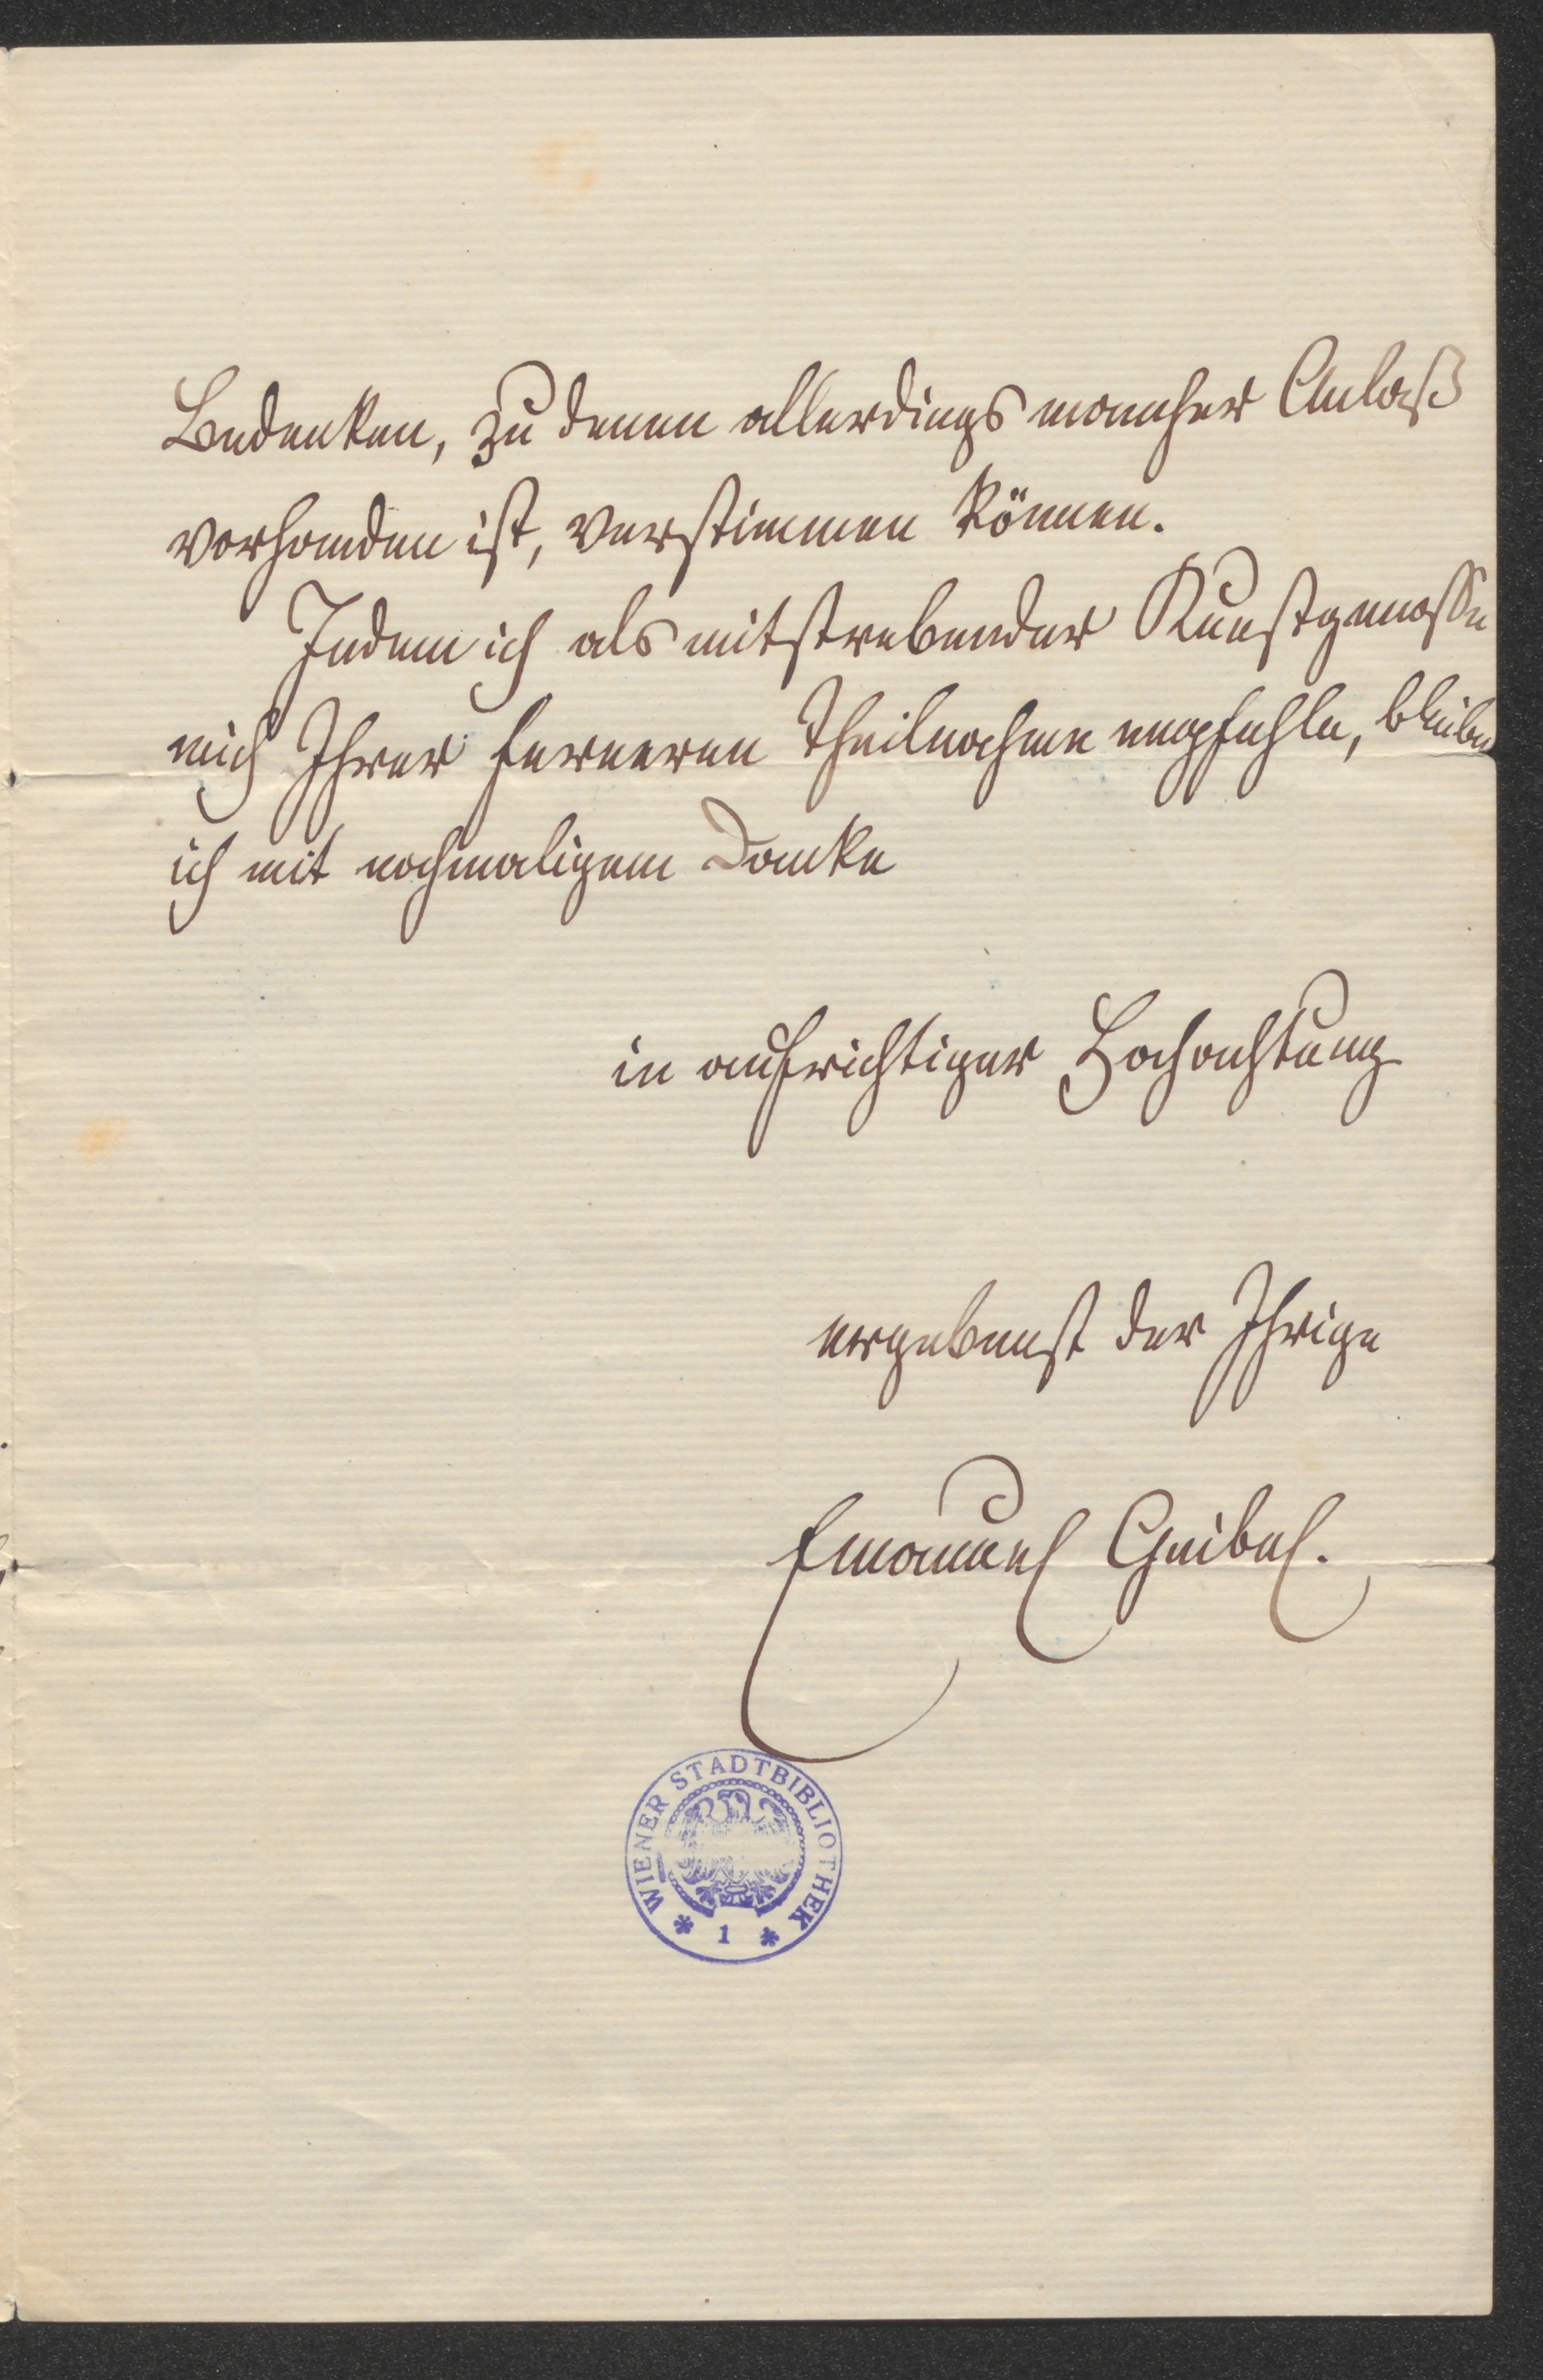 Bedenken, zu denen allerdings mancher Anlaß
vorhanden ist, verstimmen können.
Indem ich als mitstrebender Kunstgenosse
mich Ihrer ferneren Theilnahme empfehle, bleibe
ich mit nochmaligem Danke
in aufrichtiger Hochachtung
ergebenst der Ihrige
Emanuel Geibel.
WIENER STADTBIBLIOTHEK
* 1 *